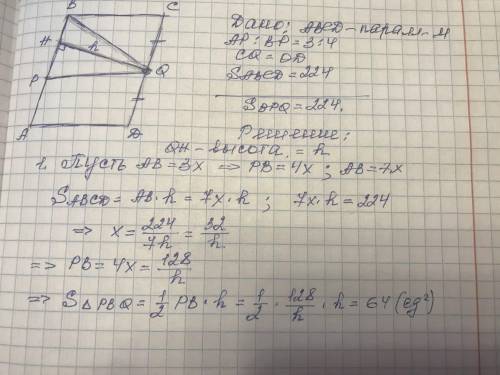 B C
H h
P Q
A D
Дано: ABCD - парал-м
AP : BP = 3:4
CQ = QD
SABCD = 224
SBPQ = 224.
Решение:
QH - высота = h
1. Пусть AB = 3x ⇒ PB = 4x ; AB = 7x
SABCD = AB · h = 7x · h ; 7x · h = 224
⇒ x = 224/7h = 32/h
⇒ PB = 4x = 128/h
⇒ S△PBQ = 1/2 PB · h = 1/2 · 128/h · h = 64 (ед²)